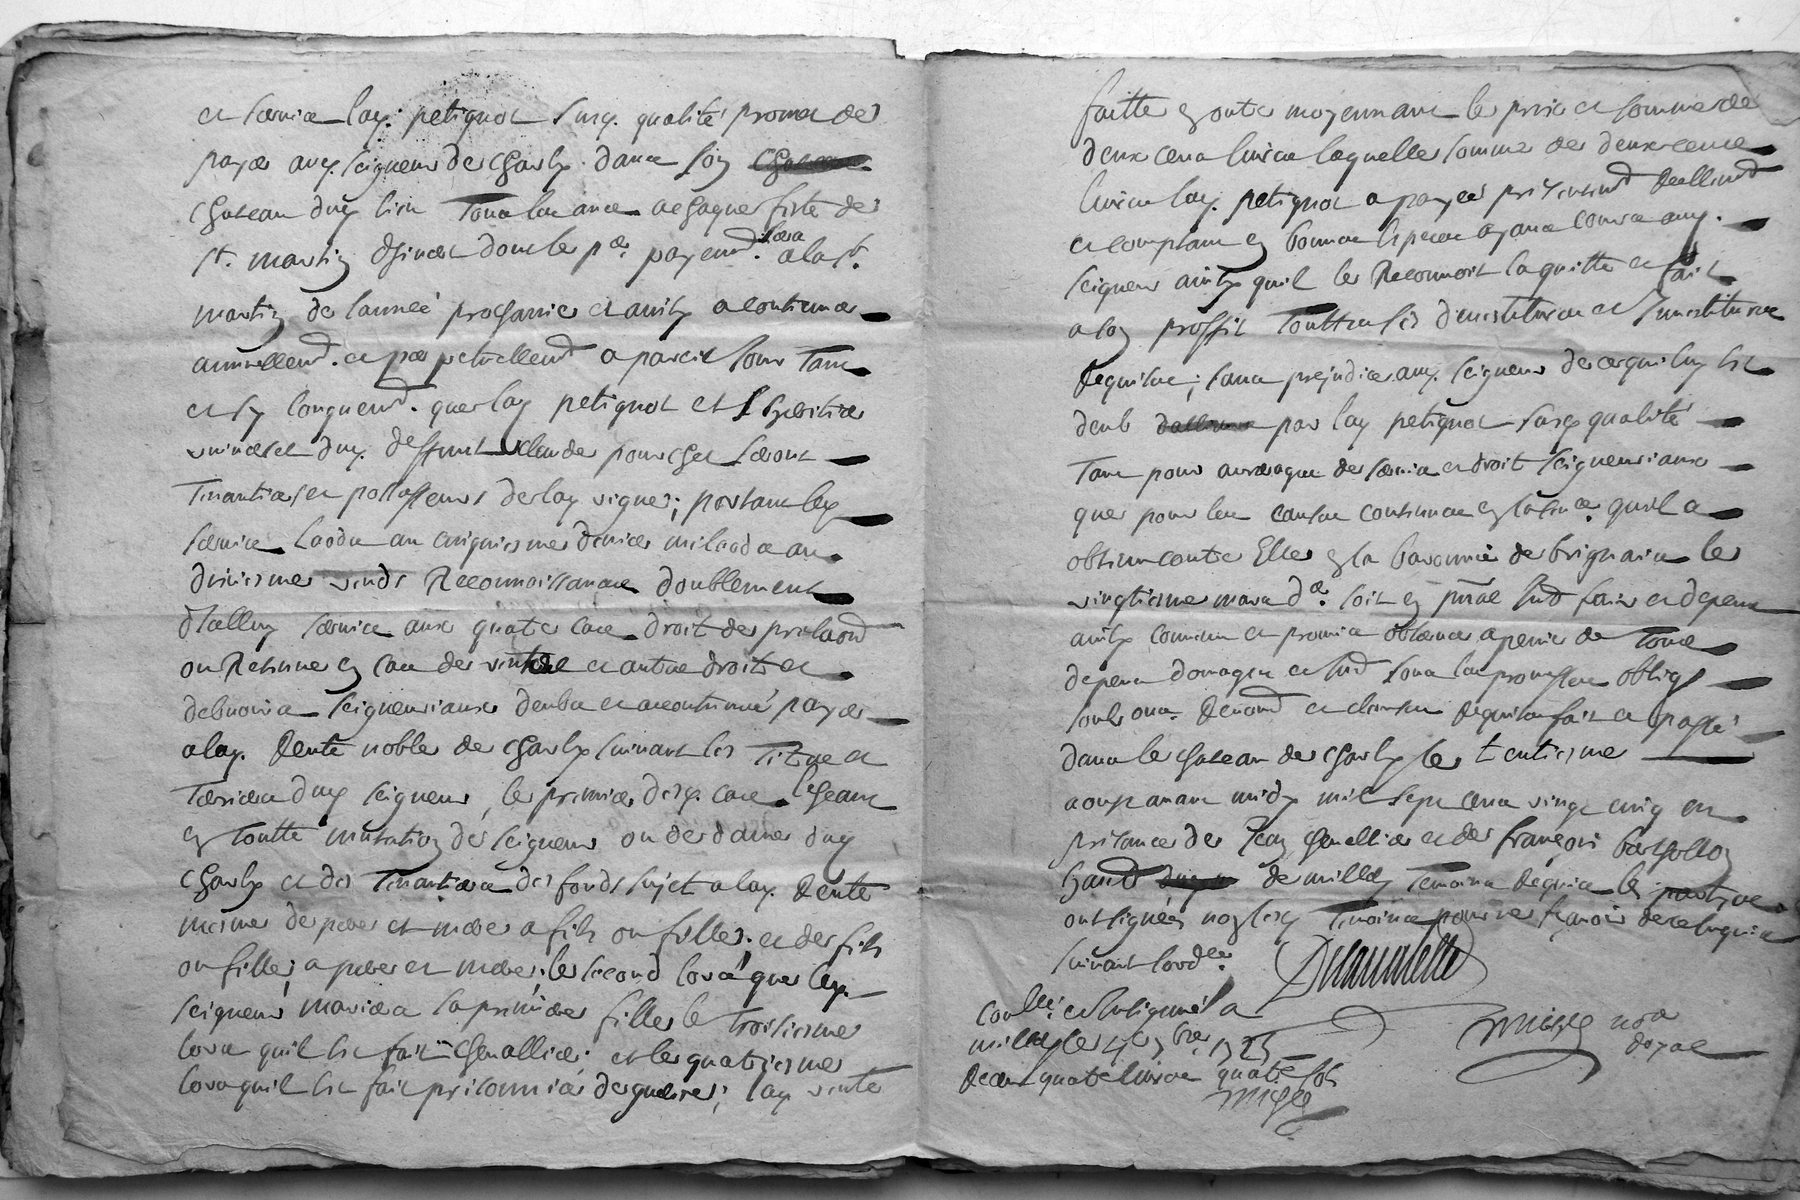 et servis lad. petignot susd. qualité promet de
payer aud. seigneur de Charly dans son
Chateau dud. lieu Tous les ans a chaque feste de
St. martin d'hiver dont le pr. payemt. sera a la St.
martin de l'année prochaine et ainsy a continuer
annuellemt. et perpetuellemt a pareil jour Tant
et sy longuemt. que lad. petignot et heritiers
universel dud. deffunt Claude pourchet seront
Tenantiers et possesseurs de lad. vigne; portant led.
servis laods au cinquiesme denier milaods au
diziesme vends Reconnoissance doublement
d'icelluy servis aux quatre cas droit de prelaon
ou Retenue en cas de vente et autres droits et
debvoirs seigneuriaux deubs et accoutumé payer
a lad. Rente noble de Charly suivant les Titres et
Terriers dud. seigneur, le premier desd. cas escheant
en Toutte mutation de seigneur ou de dame dud.
Charly et des Tenantiers des fonds sujet a lad. Rente
mesme de pere et mere a fils ou filles; et de fils
ou filles, a pere et mere, le second lors que led.
seigneur mariera sa premiere fille le troisiesme
lors quil sera fait Chevallier; et le quatriesme
lors quil sera fait prisonnier de guerre; lad. vente
faitte en outre moyennant le prix et somme de
deux cens livres laquelle somme de deux cens
livres lad. petignot a payée presentemt Reellemt
et comptant en bonnes especes ayant cours aud.
seigneur ainsy quil le Reconnoit la quitte et fait
a son proffit Touttes les devestitures et Investitures
Requises; sans prejudice aud. seigneur de ce qui luy est
deub par lad. petignot susd. qualité
Tant pour arrerages de servis et droit seigneuriaux
que pour les causes contenues en la sence. quil a
obtenu contre Elle en la baronnie de brignais le
vingtiesme mars der. soit en fraix et depens
ainsy convenu et promis observer a peine de Tous
depens domages et sous les promesses oblig
soub ons. Renond et clauses Requises fait et passé
dans le chateau de Charly le trentiesme
aoust avant midy mil sept cens vingt cinq en
presence de Jean Chevallier et de françois barthollon
habt de millery Temoins Requis les parties
ont signées non lesd. Temoins pour ne sçavoir de ce Enquis
suivant l'ordce.
Conllé: et Insinué a
millery le 4e 7bre 1725
Recu quatre livres quatre sols